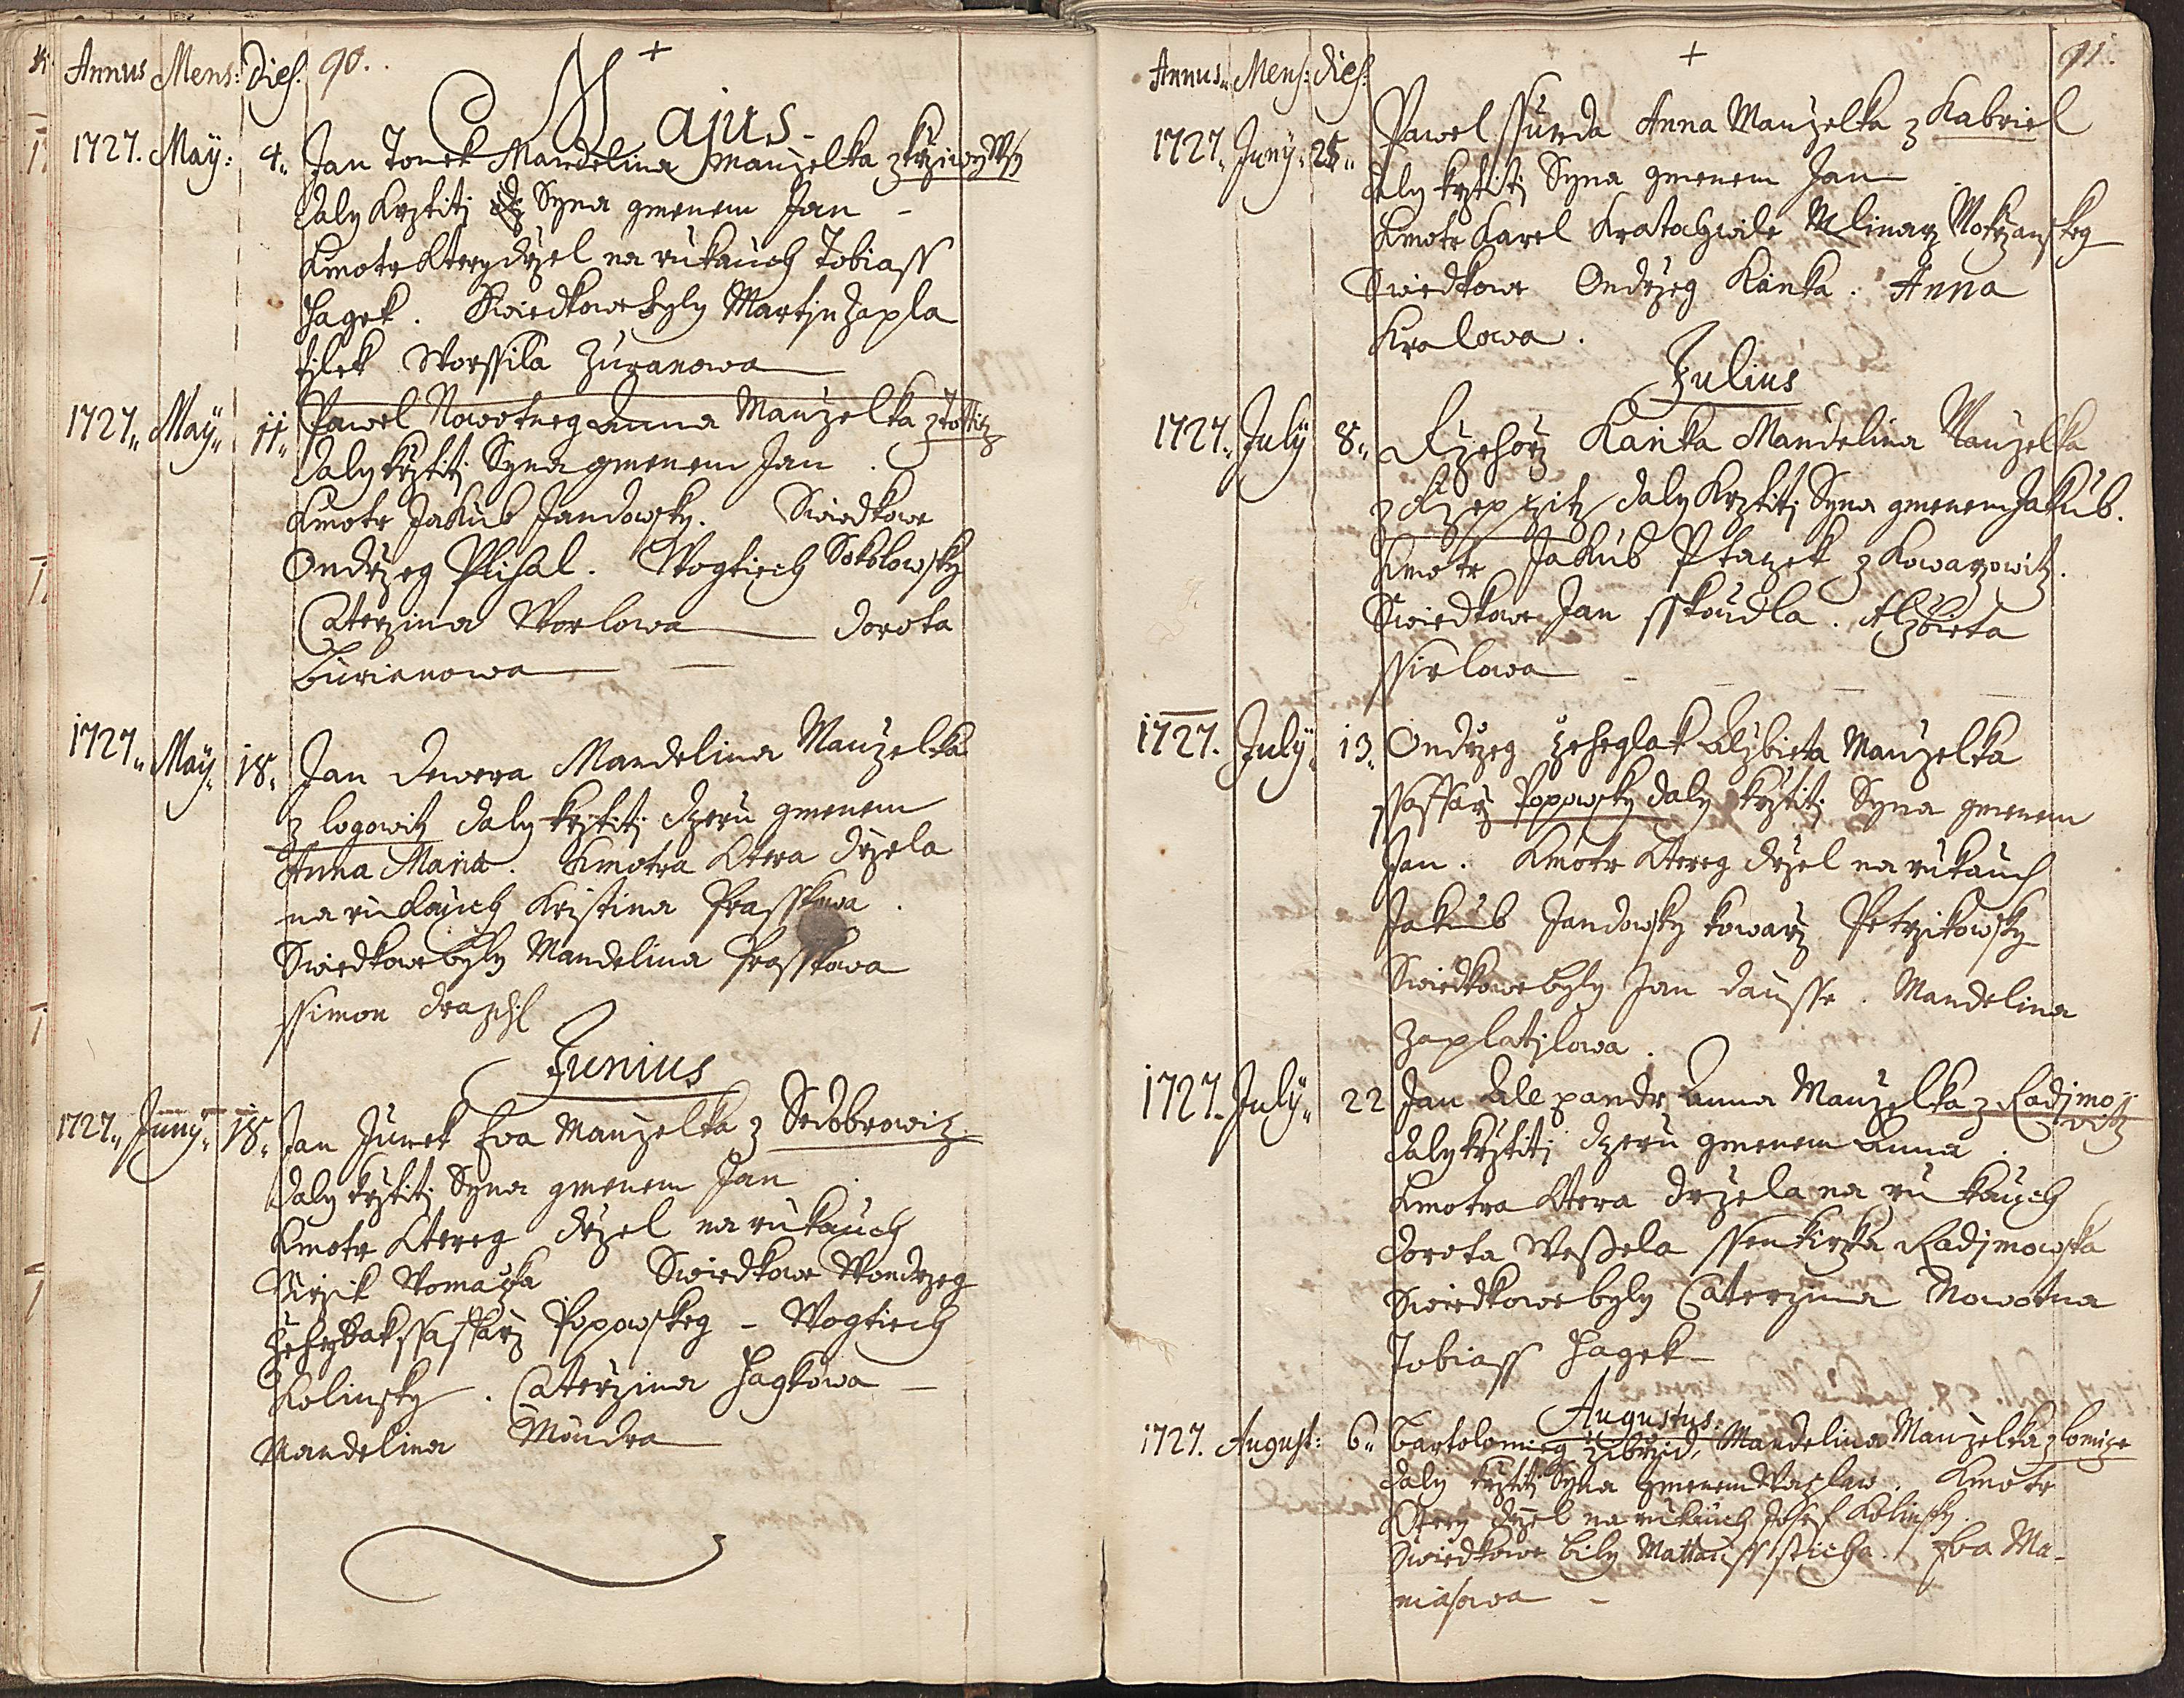 Annus Mens: Dies. 90.
Majus
1727. Maÿ: 4. Jan Tomek Mandelina Manzelka z krziweÿ Wsy
daly krztiti Syna gmenem Jan -
Kmotr kteryz drzel na rukauch Tobiass
Hagek. Swiedkowe byly Martin Zapla
tilek Worssila Zuranowa
1727. Maÿ. 11. Pawel Nowotneg Anna Manzelka z
daly krztiti Syna gmenem Jan.
Kmotr Jakub Jandowsky. Swiedkowe
Ondrzeg Plihal. Wogtiech Sokolowsky
Caterzina Worlowa Dorota
Burianowa
1727. Maÿ. 18. Jan Dewera Mandelina Manzelka
z logowitz daly krztiti dczeru gmenem
Anna Maria. Kmotra ktera drzela
na rukauch Kristina Prasskowa.
Swiedkowe byly Mandelina Prasskowa
ssimon Drazdil
Junius
1727. Junÿ. 18. Jan Junek Eva Manzelka z Sedobrowitz
daly krztiti Syna gmenem Jan
Kmotr ktereg drzel na rukauch
Girzik Womaczka Swiedkowe Wondrzeg
ssaffarz Popowskeg - Wogtiech
Kolinsky. Caterzina Hagkowa -
Mandelina Maudra
Annus. Mens: Dies: 91.
1727. Junÿ. 25. Pawel ssurda Anna Manzelka z Kabriel
daly krztiti Syna gmenem Jan
Kmotr Karel Kratochwile Mlinarz Mokrzanskeg
Swiedkowe Ondrzeg Kanka. Anna
Kralowa.
Julius
1727. Julÿ 8. Rzehorz Kanka Mandelina Manzelka
z Rzepczitz daly krztiti Syna gmenem Jakub.
Kmotr Jakub Ptaczek z Kowarzowitz.
Swiedkowe Jan sskoudla. Alzbieta
ssirlowa
1727. Julÿ. 13. Ondrzeg Alzbieta Manzelka
ssaffarz Popowsky daly krztiti Syna gmenem
Jan. Kmotr ktereg drzel na rukauch
Jakub Jandowsky kowarz Petrzikowsky
Swiedkowe byly Jan Dausse. Mandelina
Zaplatilowa.
1727. Julÿ. 22 Jan Alexandr Anna Manzelka z Radimo-
witz
daly krztiti dczeru gmenem Anna.
Kmotra ktera drzela na rukauch
Dorota Weßela ssenkirzka Radimowska
Swiedkowe byly Caterzina Nowotna
Tobiass Hagek
Augustus.
1727. August: 6. Bartolomieg Zibrzid, Mandelina Manzelka z lomicze
daly krztiti Syna gmenem Waczlaw. Kmotr
ktery drzel na rukauch Josef Kolinsky.
Swiedkowe bily Mattauss sticha. Eva Ma-
niasowa